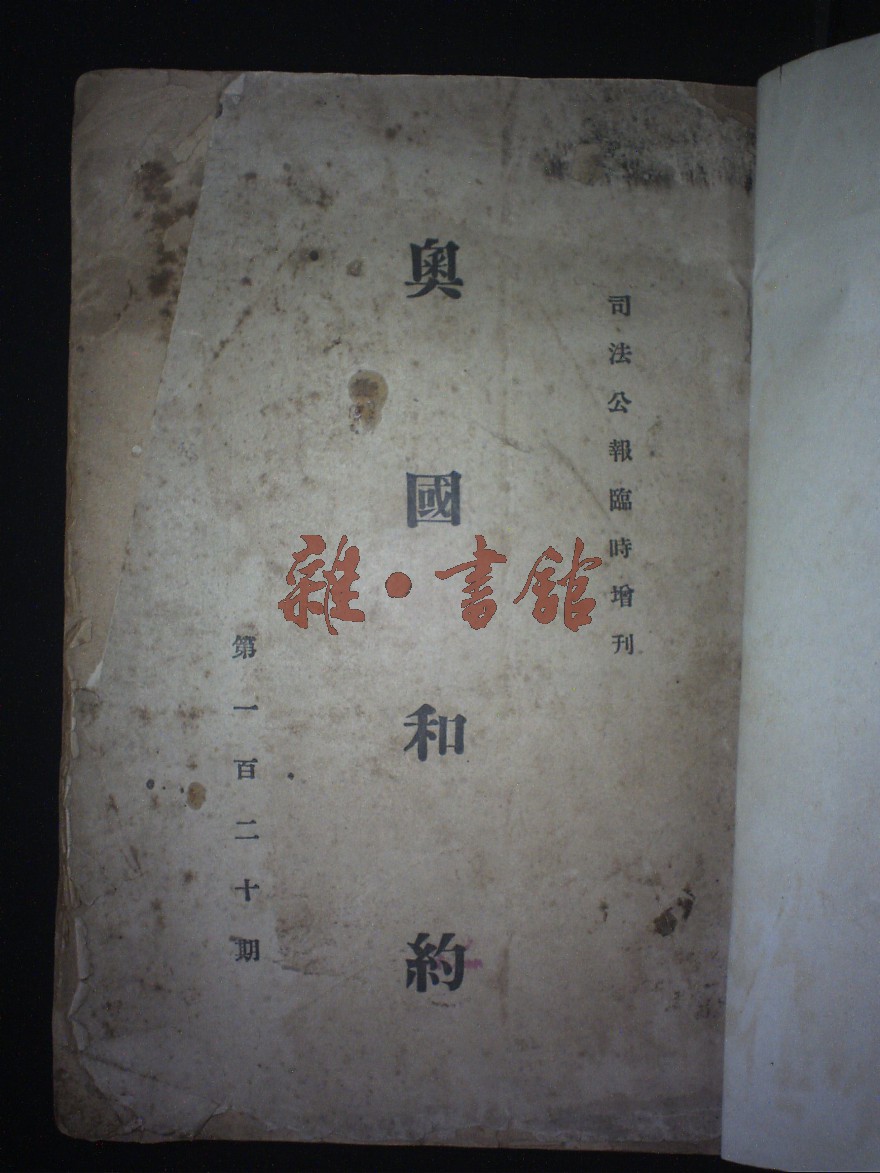 司法公報臨時增刊
奧國和約
第一百二十期
雜·書館